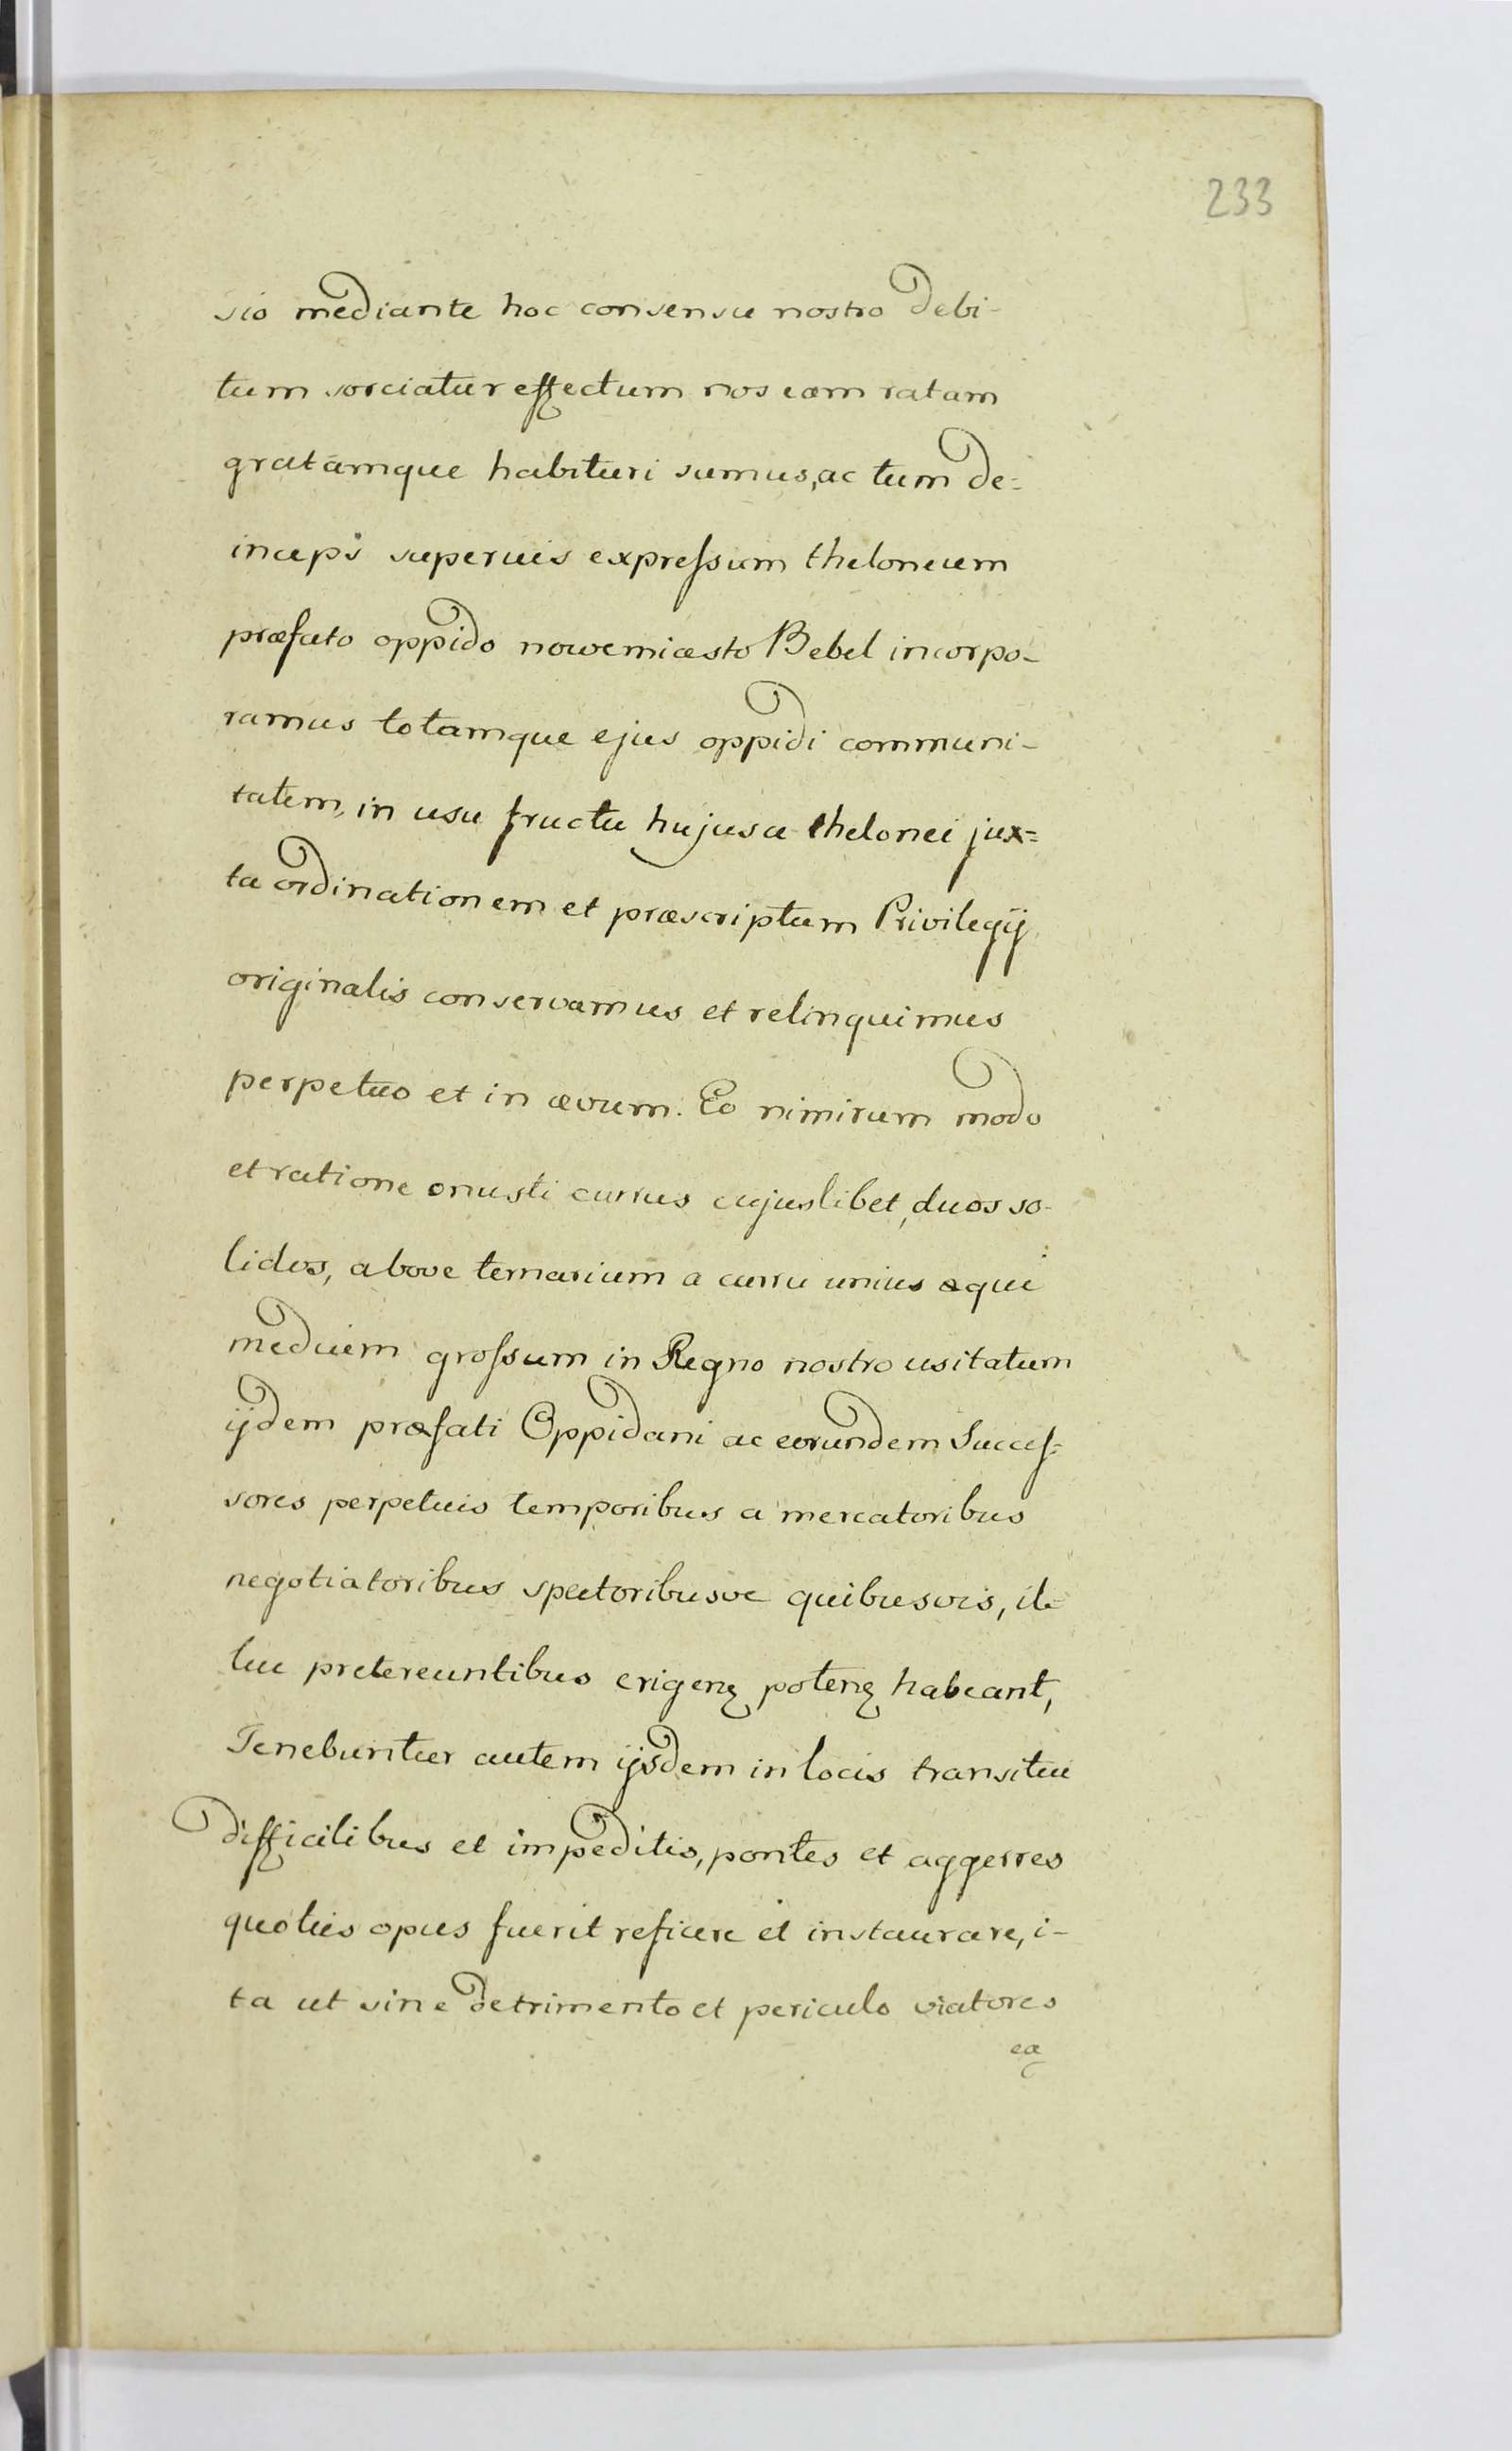 233
sio mediante hoc consensu nostro debi-
tum sorciatur effectum nos eam ratam
gratamque habituri sumus, ac tum de=
inceps superius expreſsum theloneum
præfato oppido nowemiasto Bebel incorpo-
ramus totamque ejus oppidi communi-
tatem, in usu fructu hujusce thelonei jux=
ta ordinationem et præscriptum Privilegij
originalis conservamus et relinquimus
perpetuo et in ævum. Eo nimirum modo
et ratione onusti currus cujuslibet, duos so-
lidos, a bove ternarium a curru unius equi
medium groſsum in Regno nostro usitatum
ijdem præfati Oppidani ac eorundem Succeſ=
sores perpetuis temporibus a mercatoribus
negotiatoribus spectoribusve quibusvis, il-
luc pretereuntibus erigenꝫ potenꝫ habeant,
Tenebuntur autem ijsdem in locis transitui
difficilibus et impeditis, pontes et aggerres
quoties opus fuerit reficere et instaurare, i-
ta ut sine detrimento et periculo viatores
ea